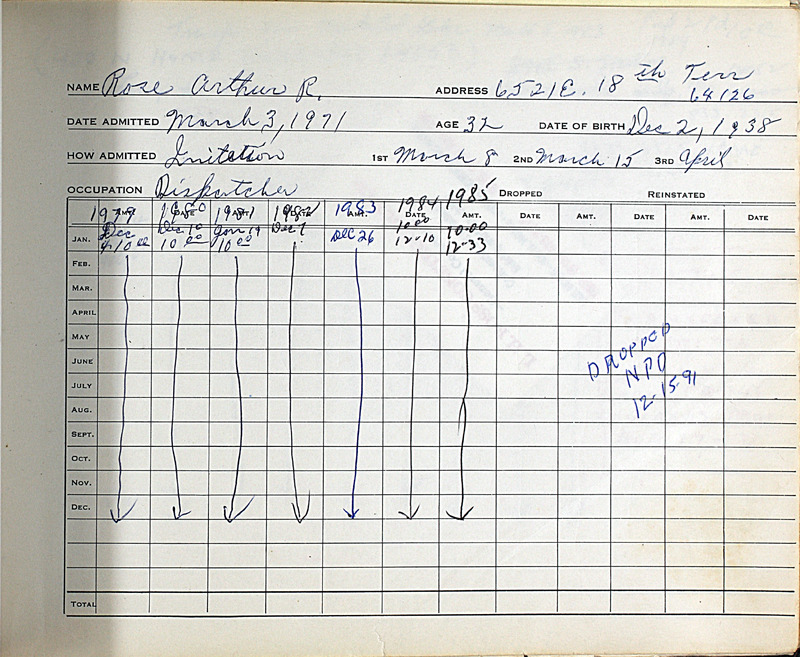 NAME Rose Arthur R. ADDRESS 6521 E. 18th Terr
64126
DATE ADMITTED March 3, 1971 AGE 32 DATE OF BIRTH Dec 2, 1938
HOW ADMITTED Initation 1ST March 8 2ND March 15 3RD April
OCCUPATION Dispatcher DROPPED REINSTATED
1979 1980 1981 1982 1983 1984 1985
AMT. DATE AMT. DATE AMT. DATE AMT. DATE AMT. DATE AMT. DATE
JAN. Dec Dec 10 Jan 19 Dec 7 DEC 26 10.00 10.00
10 00 10 00 10 00 12-10 12-33
FEB.
MAR.
APRIL
MAY
JUNE
JULY
AUG.
SEPT.
OCT.
NOV.
DEC.
TOTAL
DROPPED
NPD
12-15-91